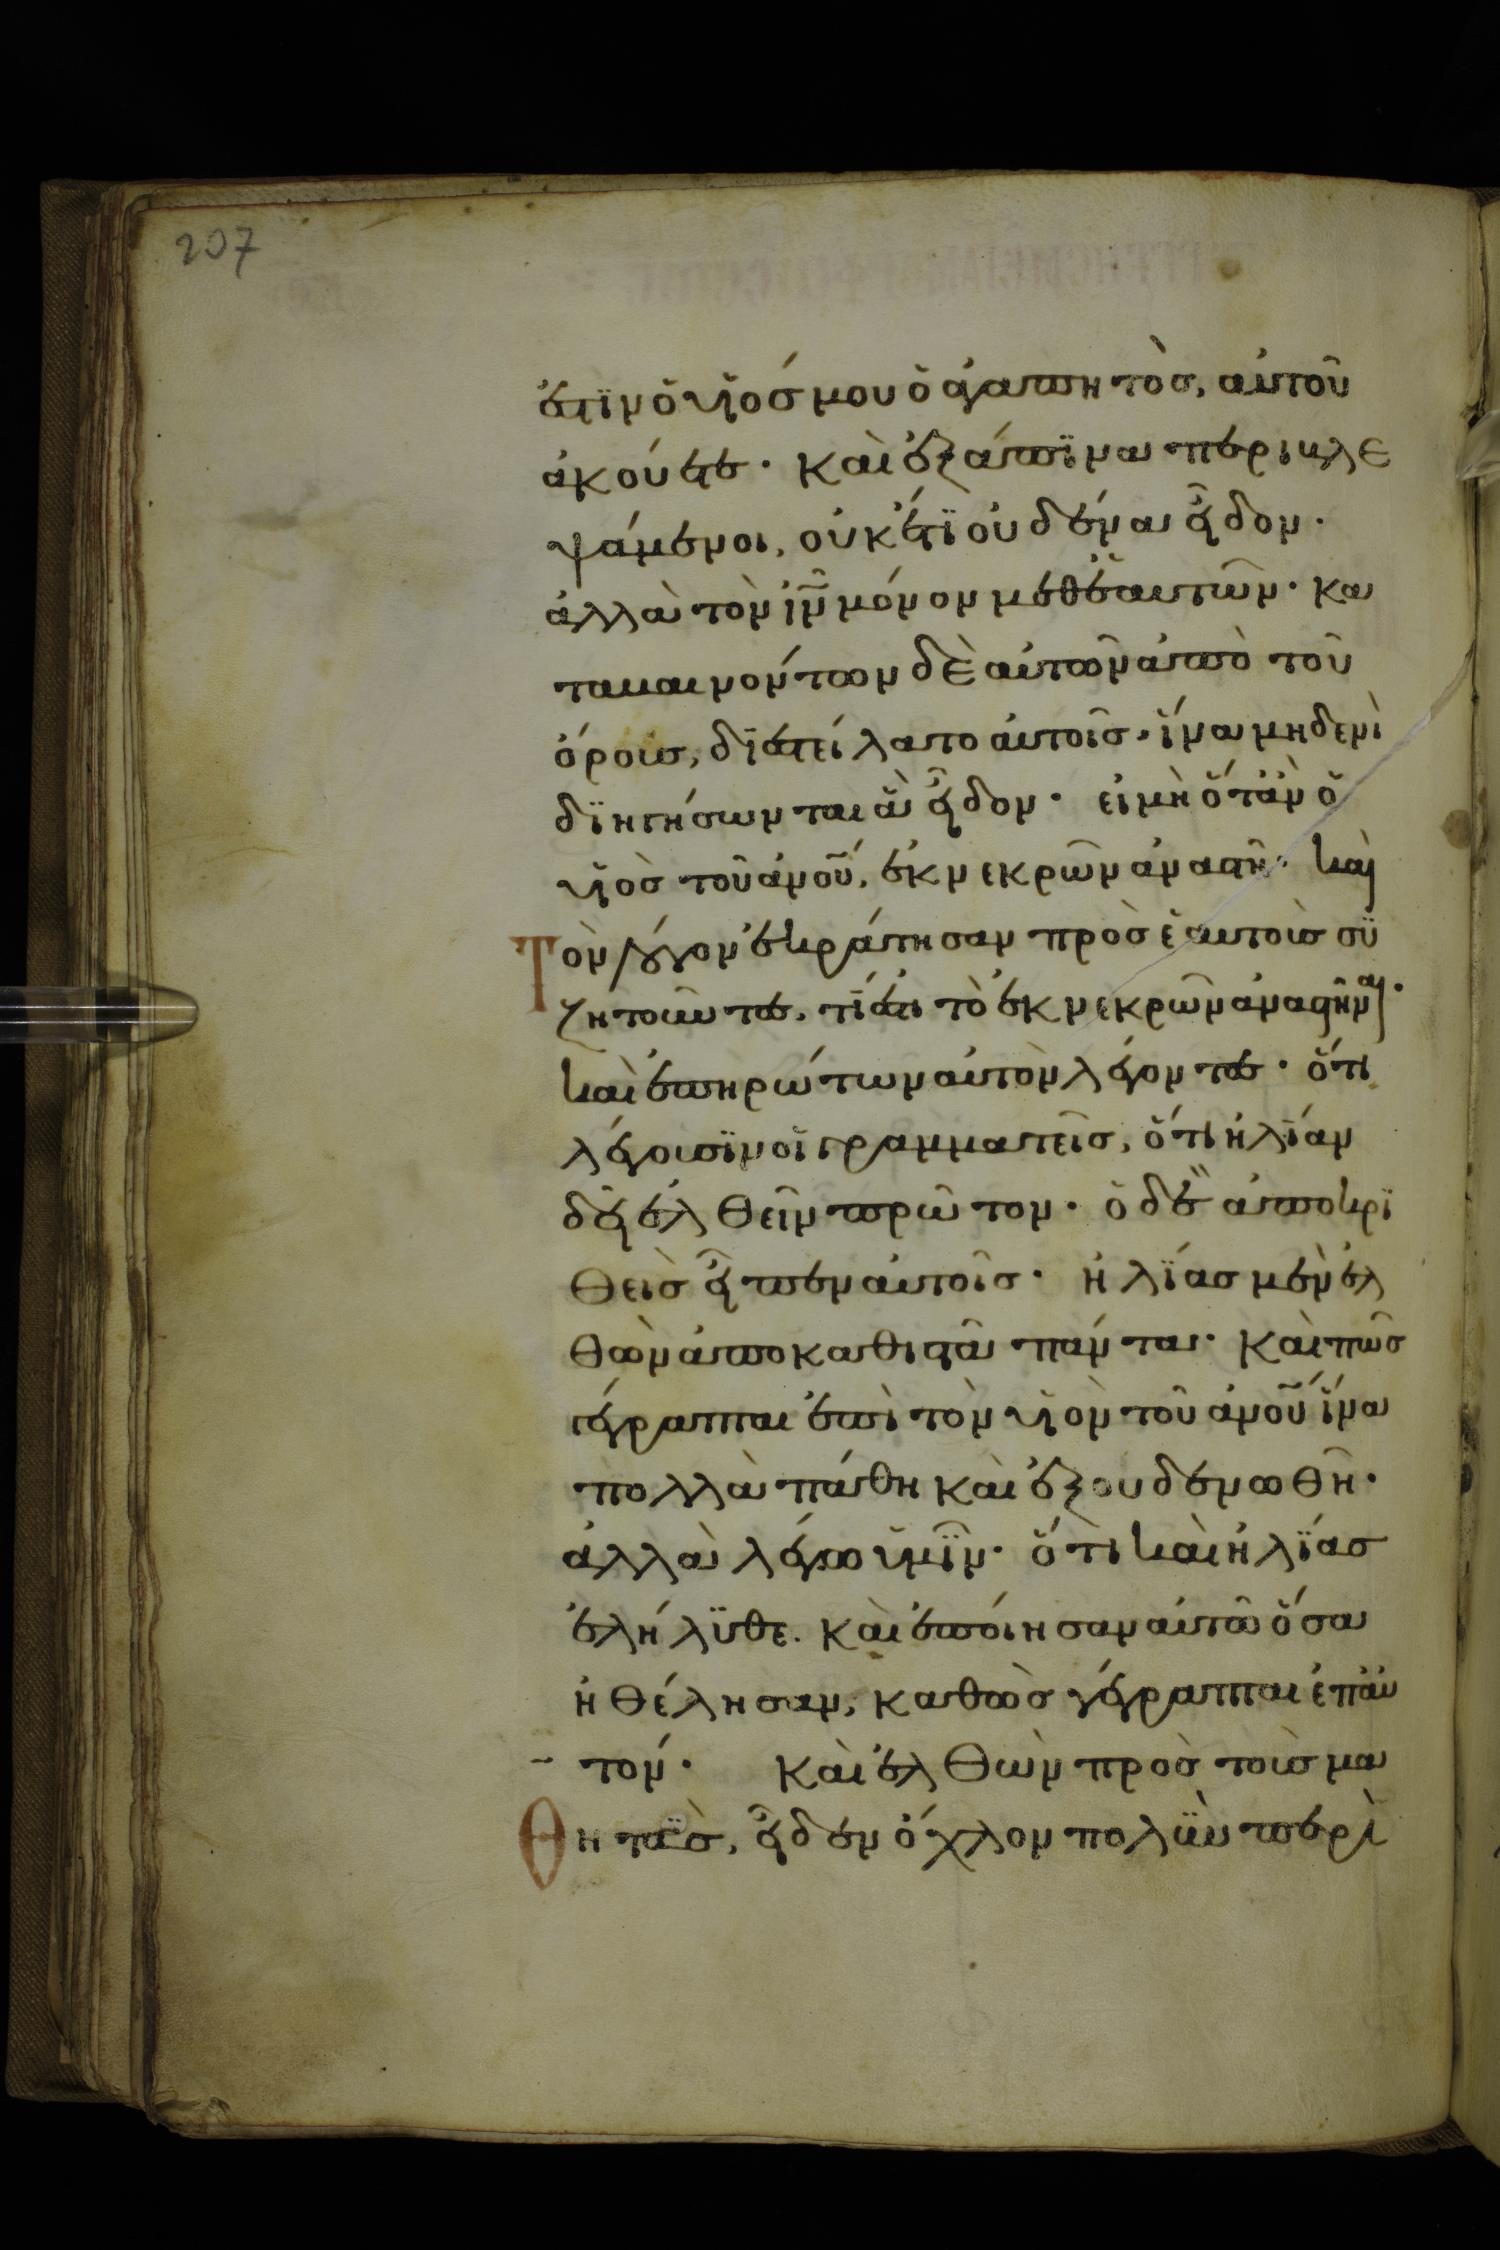 207
ἐστϊν ὁ υἱόσ μου ὁ ἀγαπητὸσ, αὐτοῦ
ἀκούετε· καὶ ἐξάπϊνα περιβλε
ψάμενοι, οὐκέτϊ οὐδένα εἶδον·
ἀλλὰ τὸν ἰν̅ μόνον μεθ' ἑαυτῶν· κα
ταβαινόντων δὲ αὐτῶν ἀπὸ τοῦ
ὄρουσ, δϊεστείλατο αὐτοῖσ· ἵνα μηδενὶ
δϊηγήσωνται ἃ εἶδον· εἰ μὴ ὅταν ὁ
υἱὸσ τοῦ ἀνο̅υ̅, ἐκ νεκρῶν ἀναστῆ· καὶ
Τὸν λόγον ἐκράτησαν πρὸσ ἑαυτοὺσ συ
ζητοῦντεσ, τί ἐστι τὸ ἐκ νεκρῶν ἀναστῆναι·
καὶ ἐπηρώτων αὐτὸν λέγοντεσ· ὅτι
λέγουσϊν οἱ γραμματεῖσ, ὅτι ἠλίαν
δεῖ ἐλθεῖν πρῶτον· ὁ δὲ ἀποκρϊ
θεὶσ εἶπεν αὐτοῖσ· ἠλϊάσ μὲν ἐλ
θὼν ἀποκαθιστᾶ πάντα· καὶ πῶσ
γέγραπται ἐπὶ τὸν υἱὸν τοῦ ἀνο̅υ̅ ἵνα
πολλὰ πάθη καὶ ἐξουδενωθῆ·
ἀλλὰ λέγω ὑμῖν· ὅτι καὶ ἠλϊάσ
ἐλήλϋθε. καὶ ἐποίησαν αὐτῶ ὅσα
ἠθέλησαν, καθὼσ γέγραπται ἐπ' αὐ
τόν· Καὶ ἐλθὼν πρὸσ τοὺσ μα
Θητὰσ, εἶδεν ὄχλον πολὺν περὶ